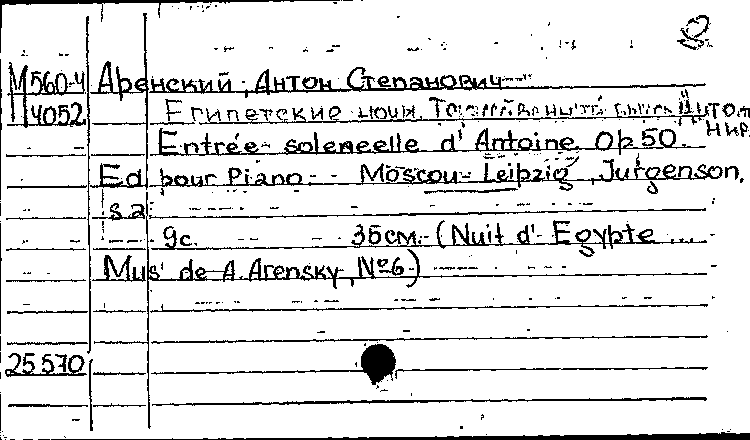 М560-4 Аренский, Антон Степанович
М4052 Египетские ночи. Торжественный выезд Антония.
Entrée soleneelle d'Antoine. Op 50.
Ed. pour Piano. Moscou-Leipzig, Jurgenson,
s.a.
9с. 35см. (Nuit d'Egypte ...
Mus. de A. Arensky, №6)
25570